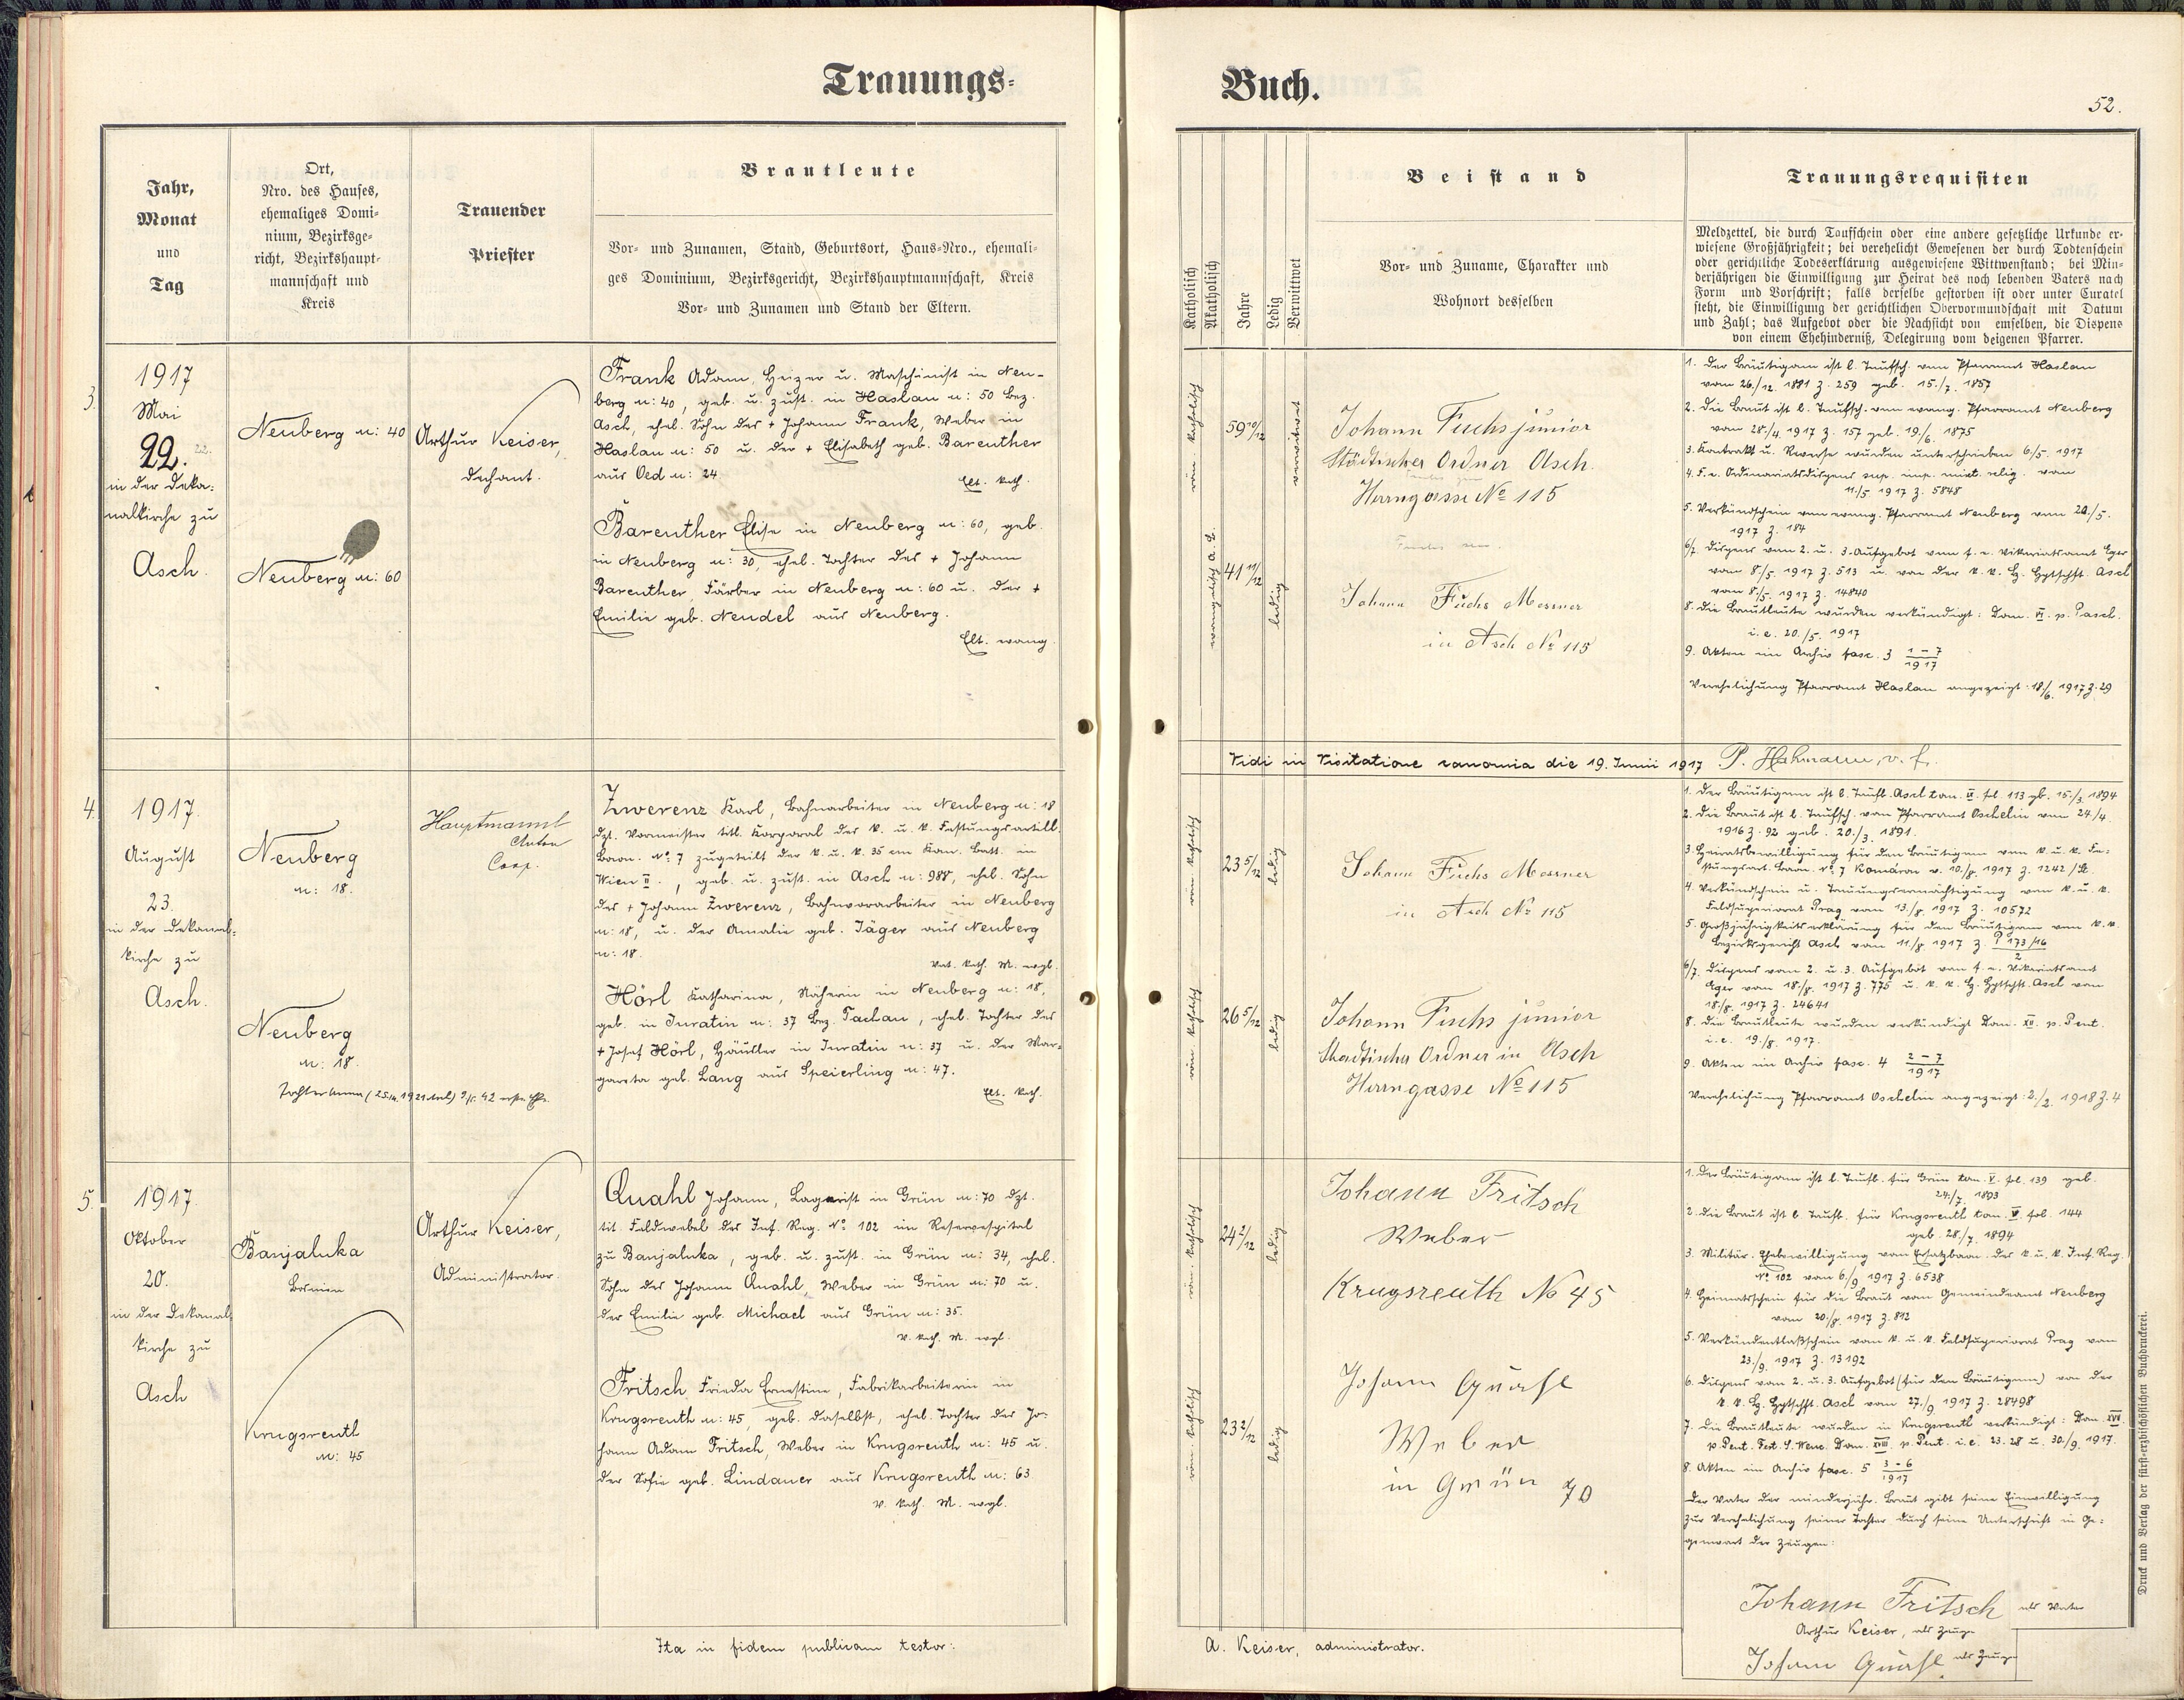 Trauungs-
Buch.
52.
Jahr,
Monat
und
Tag
Ort,
Nro. des Hauses,
ehemaliges Domi-
nium, Bezirksge-
richt, Bezirkshaupt-
mannschaft und
Kreis
Trauender
Priester
Brautleute
Vor- und Zunamen, Stand, Geburtsort, Haus-Nro., ehemali-
ges Dominium, Bezirksgericht, Bezirkshauptmannschaft, Kreis
Vor- und Zunamen und Stand der Eltern.
Katholisch
Akatholisch
Jahre
Ledig
Verwittwet
Beistand
Vor- und Zuname, Charakter und
Wohnort desselben
Trauungsrequisiten
Meldzettel, die durch Taufschein oder eine andere gesetzliche Urkunde er-
wiesene Großjährigkeit; bei verehelicht Gewesenen der durch Todtenschein
oder gerichtliche Todeserklärung ausgewiesene Wittwenstand; bei Min-
derjährigen die Einwilligung zur Heirat des noch lebenden Vaters nach
Form und Vorschrift; falls derselbe gestorben ist oder unter Curatel
steht, die Einwilligung der gerichtlichen Obervormundschaft mit Datum
und Zahl; das Aufgebot oder die Nachsicht von emselben, die Dispens
von einem Ehehinderniß, Delegirung vom deigenen Pfarrer.
3.
1917
Mai
22. 22.
in der Deka-
nalkirche zu
Asch.
Neuberg n: 40
Neuberg n: 60
Arthur Keiser,
Dechant.
Frank Adam, Heizer u. Maschinist in Neu-
berg n: 40, geb. u. zust. in Haslau n: 50 Bez.
Asch, ehel. Sohn des + Johann Frank, Weber in
Haslau n: 50 u. der + Elisabeth geb. Bareuther
aus Oed n: 24
Elt. kath.
Bareuther Elise in Neuberg n: 60, geb.
in Neuberg n: 30, ehel. Tochter des + Johann
Bareuther, Färber in Neuberg n: 60 u. der +
Emilie geb. Neudel aus Neuberg.
Elt. evang.
röm. katholisch
59 10/12
verwitwet
evangelisch A. C.
41 11/12
ledig
Johann Fuchs junior
Städtischer Ordner Asch.
Herrngasse No 115
Johann Fuchs Messner
in Asch No 115
1. Der Bräutigam ist l. Taufsch. vom Pfarramt Haslau
vom 26./12. 1891 Z. 259 geb. 15./7. 1857
2. Die Braut ist l. Taufsch. vom evang. Pfarramt Neuberg
vom 28./4. 1917 Z. 157 geb. 19./6. 1875
3. Kontrakt u. Reverse wurden unterschrieben 6/5. 1917
4. F. e. Ordinariatsdispens sup. imp. mixt. relig. vom
11./5 1917 Z. 5848
5. Verkündschein vom evang. Pfarramt Neuberg vom 20./5.
1917 Z. 184
6/7. Dispens vom 2. u. 3. Aufgebot vom f. e. Vikariatsamt Eger
vom 8./5. 1917 Z. 513 u. von der k. k. Bz. Hptschft. Asch
vom 8./5. 1917 Z. 14840
8. Die Brautleute wurden verkündigt: Dom. VI. p. Pasch.
i. e. 20./5. 1917
9. Akten im Archiv fasc. 3 1-7/1917
Verehelichung Pfarramt Haslau angezeigt: 18/6. 1917 Z. 29
Vidi in Visitatione canonica die 19. Junii 1917 P. Hahmann, v. f.
4.
1917.
August
23.
in der Dekanal-
kirche zu
Asch.
Neuberg
n: 18.
Neuberg
n: 18.
Hauptmannl
Anton
Coop.
Zwerenz Karl, Bahnarbeiter in Neuberg n: 18
dzt. Vormeister titl. Korporal des k. u. k. Festungsartill.
Baon. No 7 zugeteilt der k. u. k. 35 cm Kan. Batt. in
Wien II., geb. u. zust. in Asch n: 988, ehel. Sohn
des + Johann Zwerenz, Bahnvorarbeiter in Neuberg
n: 18, u. der Amalie geb. Jäger aus Neuberg
n: 18.
Vat. kath. M. evgl.
Hörl Katharina, Näherin in Neuberg n: 18,
geb. in Juratin n: 37 Bez. Tachau, ehel. Tochter des
+ Josef Hörl, Häusler in Juratin n: 37 u. der Mar-
gareta geb. Lang aus Speierling n: 47.
Elt. kath.
röm. katholisch
23 5/12
ledig
röm. katholisch
26 5/12
ledig
Johann Fuchs Messner
in Asch No 115
Johann Fuchs junior
Stadtischer Ordner in Asch
Herrngasse No 115
1. Der Bräutigam ist l. Taufb. Asch tom. II. fol. 113 gb. 15./3. 1894
2. Die Braut ist l. Taufsch. vom Pfarramt Oschelin vom 24/4.
1916 Z. 92 geb. 20./3. 1891.
3. Heiratsbewilligung für den Bräutigam vom k. u. k. Fe-
stungsart. Baon. No 7 Komáron v. 10./8. 1917 Z. 1242
4. Verkündschein u. Trauungsermächtigung vom k. u. k.
Feldsuperiorat Prag vom 13./8. 1917 Z. 10572
5. Großjährigkeitserklärung für den Bräutigam vom k. k.
Bezirksgericht Asch vom 11./8. 1917 Z. P 173/16
6/7. Dispens vom 2. u. 3. Aufgebot vom f. e. Vikariatsamt
Eger vom 18./8. 1917 Z. 775 u. k. k. Bz. Hptschft. Asch vom
18./8. 1917 Z. 24641
8. Die Brautleute wurden verkündigt Dom. XII. p. Pent.
i. e. 19./8. 1917.
9. Akten im Archiv fasc. 4 2-7/1917
Verehelichung Pfarramt Oschelin angezeigt: 2./2. 1918 Z. 4
5.
1917
Oktober
20.
in der Dekanal-
kirche zu
Asch
Banjaluka
Bosnien
Krugsreuth
n: 45
Arthur Keiser,
Administrator.
Quahl Johann, Lagerist in Grün n: 70 dzt.
tit. Feldwebel des Inf. Reg. No 102 im Reservespital
zu Banjaluka, geb. u. zust. in Grün n: 34, ehel.
Sohn des Johann Quahl, Weber in Grün n: 70 u.
der Emilie geb. Michael aus Grün n: 35.
V. kath. M. evgl.
Fritsch Frieda Ernestine, Fabrikarbeiterin in
Krugsreuth n: 45, geb. daselbst, ehel. Tochter des Jo-
hann Adam Fritsch, Weber in Krugsreuth n: 45 u.
der Sofie geb. Lindauer aus Krugsreuth n: 63
V. kath. M. evgl.
röm. katholisch
24 2/12
ledig
röm. katholisch
23 2/12
ledig
Johann Fritsch
Weber
Krugsreuth No 45
Johann Quahl
Weber
in Grün 70
1. Der Bräutigam ist l. Taufb. für Grün tom. V. fol. 139 geb.
24./7. 1893
2. Die Braut ist l. Taufb. für Krugsreuth tom. V fol. 144
geb. 28./7. 1894
3. Militär. Ehebewilligung vom Ersatzbaon. des k. u. k. Inf. Reg.
No 102 vom 6./9. 1917 Z. 6538
4. Heimatschein für die Braut vom Gemeindeamt Neuberg
vom 20./8. 1917 Z. 812
5. Verkündentlaßschein vom k. u. k. Feldsuperiorat Prag vom
23./9. 1917 Z. 13192
6. Dispens vom 2. u. 3. Aufgebot (für den Bräutigam) von der
k. k. Bz. Hptschft. Asch vom 27./9 1917 Z. 28498
7. Die Brautleute wurden in Krugsreuth verkündigt: Dom. XVII.
p. Pent. Fest. S. Wenc. Dom. XVIII p. Pent. i. e. 23. 28 u. 30./9. 1917.
8. Akten im Archiv fasc. 5 3-6/1917
Der Vater der minderjähr. Braut gibt seine Einwilligung
zur Verehelichung seiner Tochter durch seine Unterschrift in Ge-
genwart der Zeugen:
Johann Fritsch als Vater
Arthur Keiser, als Zeuge
Johann Quahl als Zeuge
Ita in fidem publicam testor:
A. Keiser, administrator.
Druck und Verlag der fürst-erzbischöflichen Buchdruckerei.